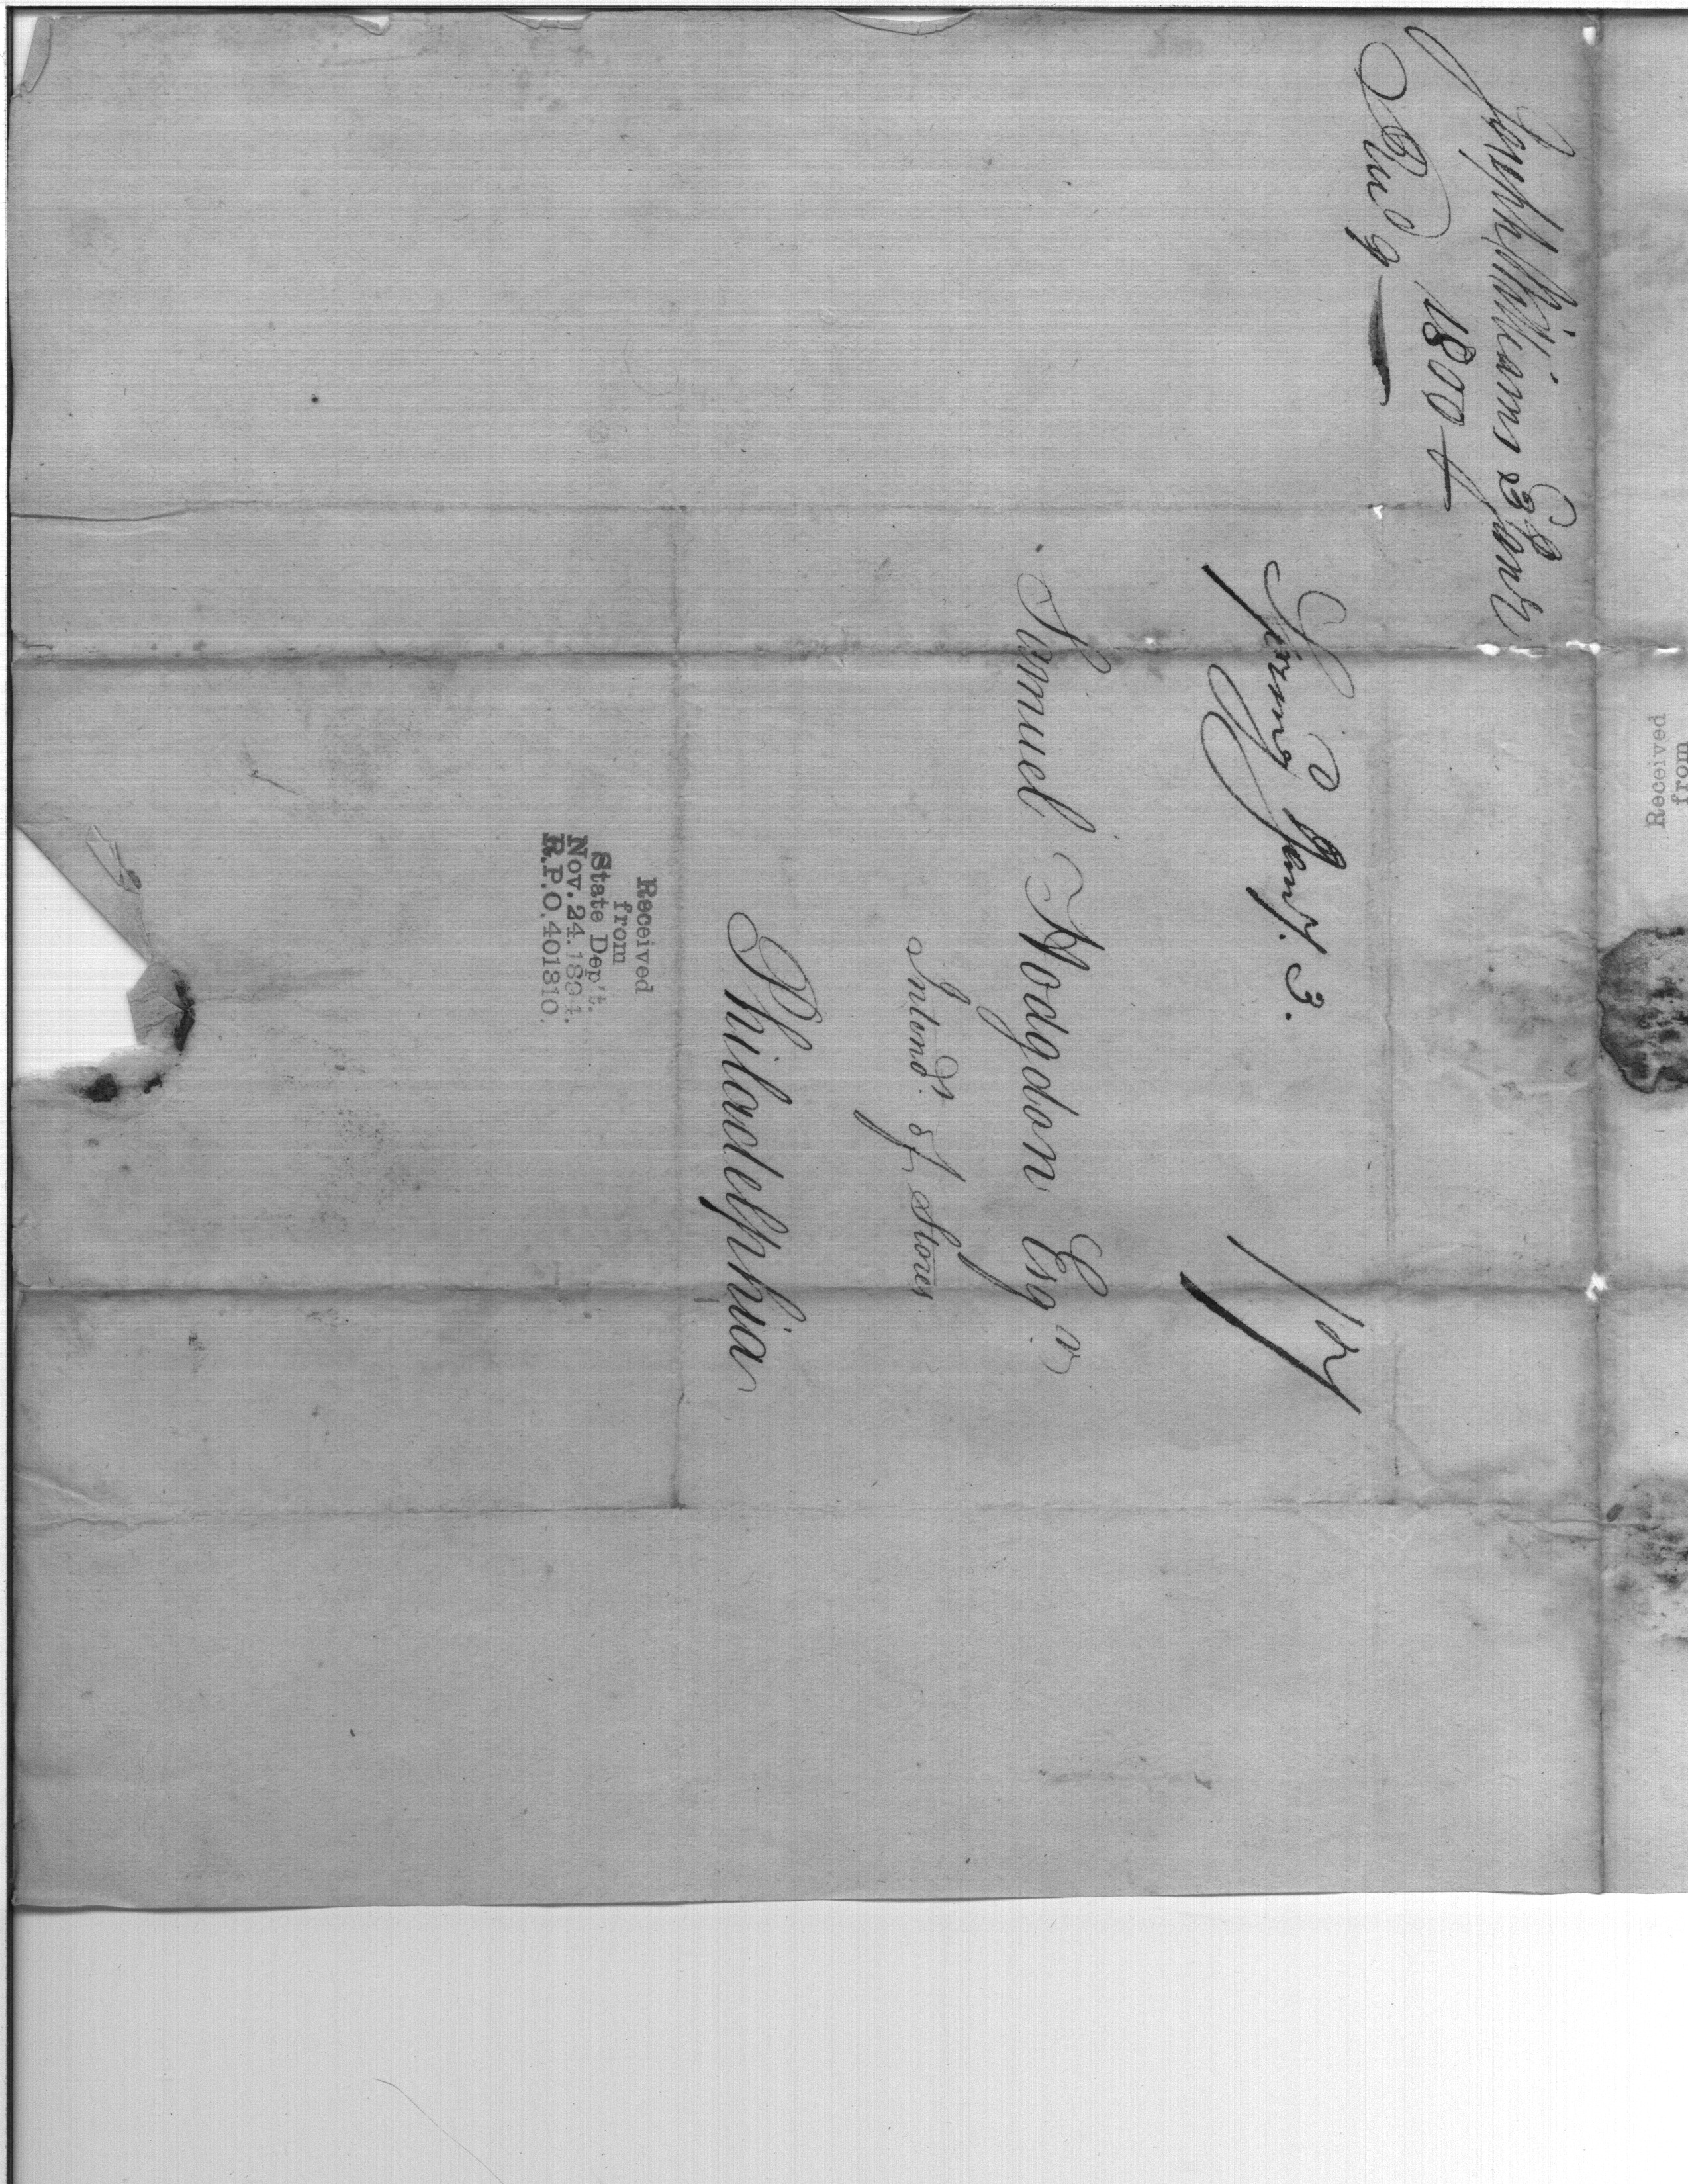 Joseph Williams 3 Jan.y
1800
Rec.d 9
Spring.d Jan.y. 3.
17
Samuel Hodgdon Esq.r
Intend.t of Stores
Philadelphia
Received
from
State Dep't.
Nov. 24. 1894.
R.P.O. 401810.
Received
from